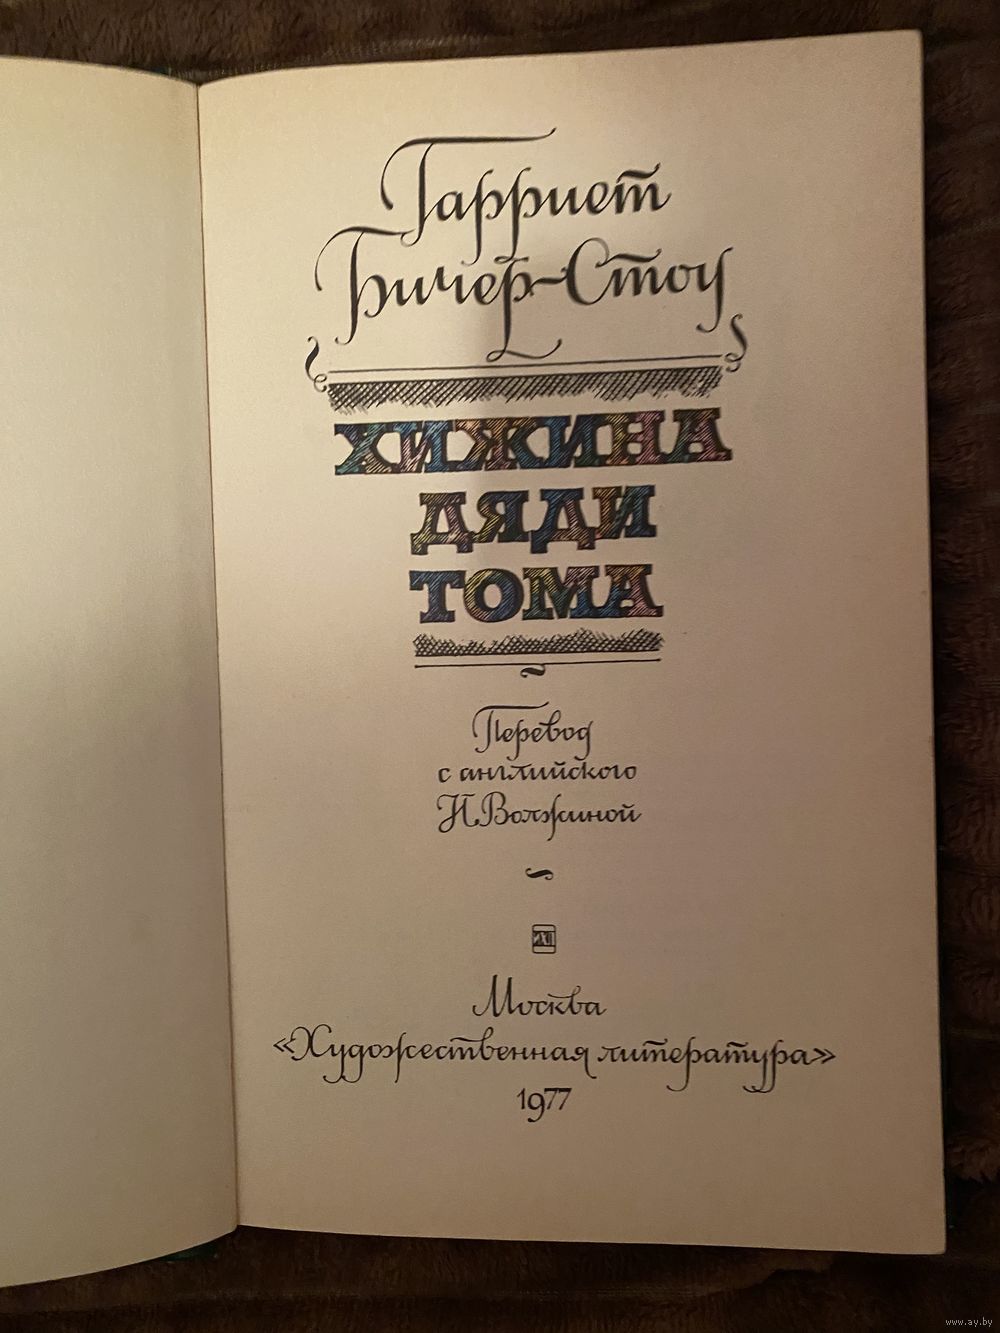 Гарриет
Бичер-Стоу
ХИЖИНА
ДЯДИ
ТОМА
Перевод
с английского
Н. Волжиной
ИХЛ
Москва
«Художественная литература»
1977
www.ay.by